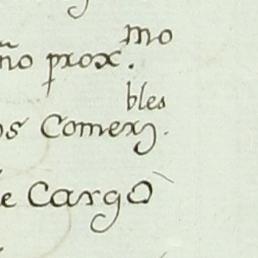 ño prox.mo
os Comerz.bles
e Cargo